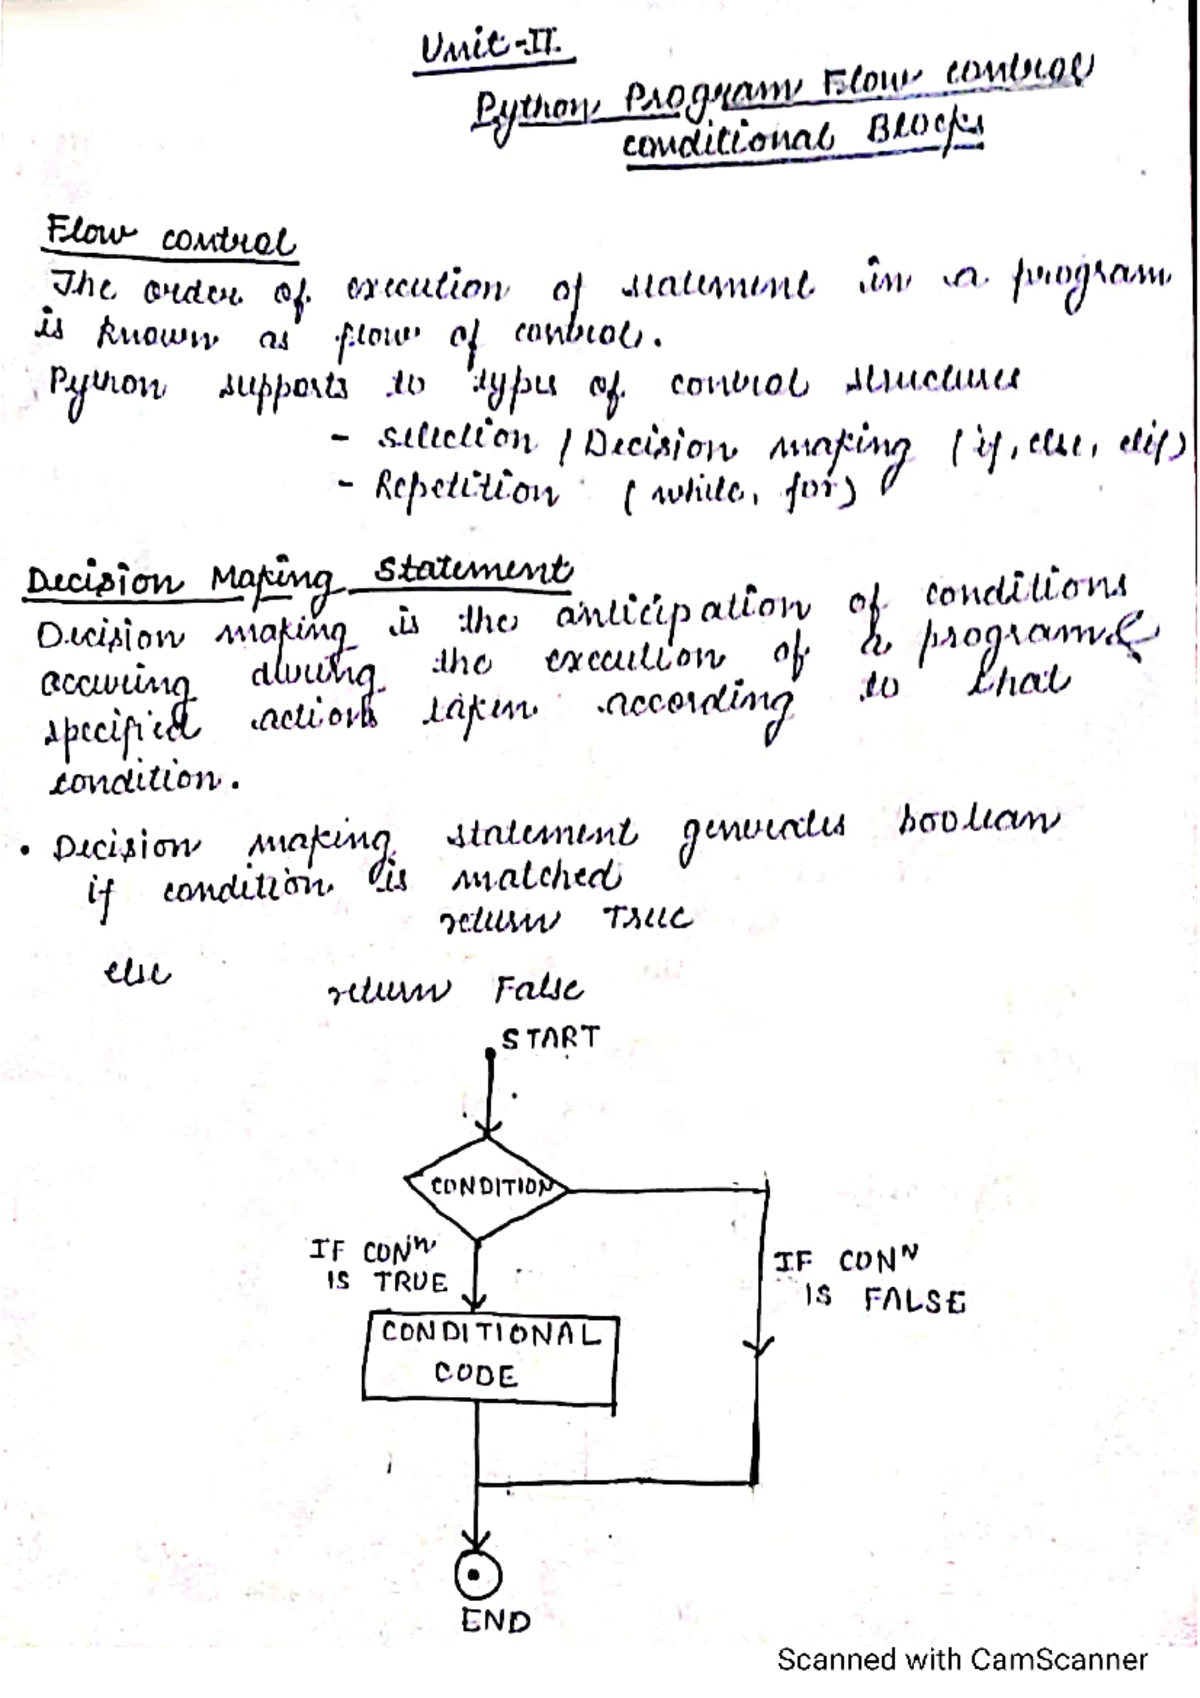 Unit-II.
Python Program Flow control
conditional Blocks
Flow control
The order of execution of statement in a program
is known as flow of control.
Python supports to types of control structures
- selection / Decision making (if, else, elif)
- Repetition (while, for)
Decision Making Statement
Decision making is the anticipation of conditions
accuring during the execution of a program &
specified actions taken according to that
condition.
• Decision making statement generates boolean
if condition is matched
return True
else
return False
START
CONDITION
IF CONⁿ
IS TRUE
IF CONᴺ
IS FALSE
CONDITIONAL
CODE
END
Scanned with CamScanner